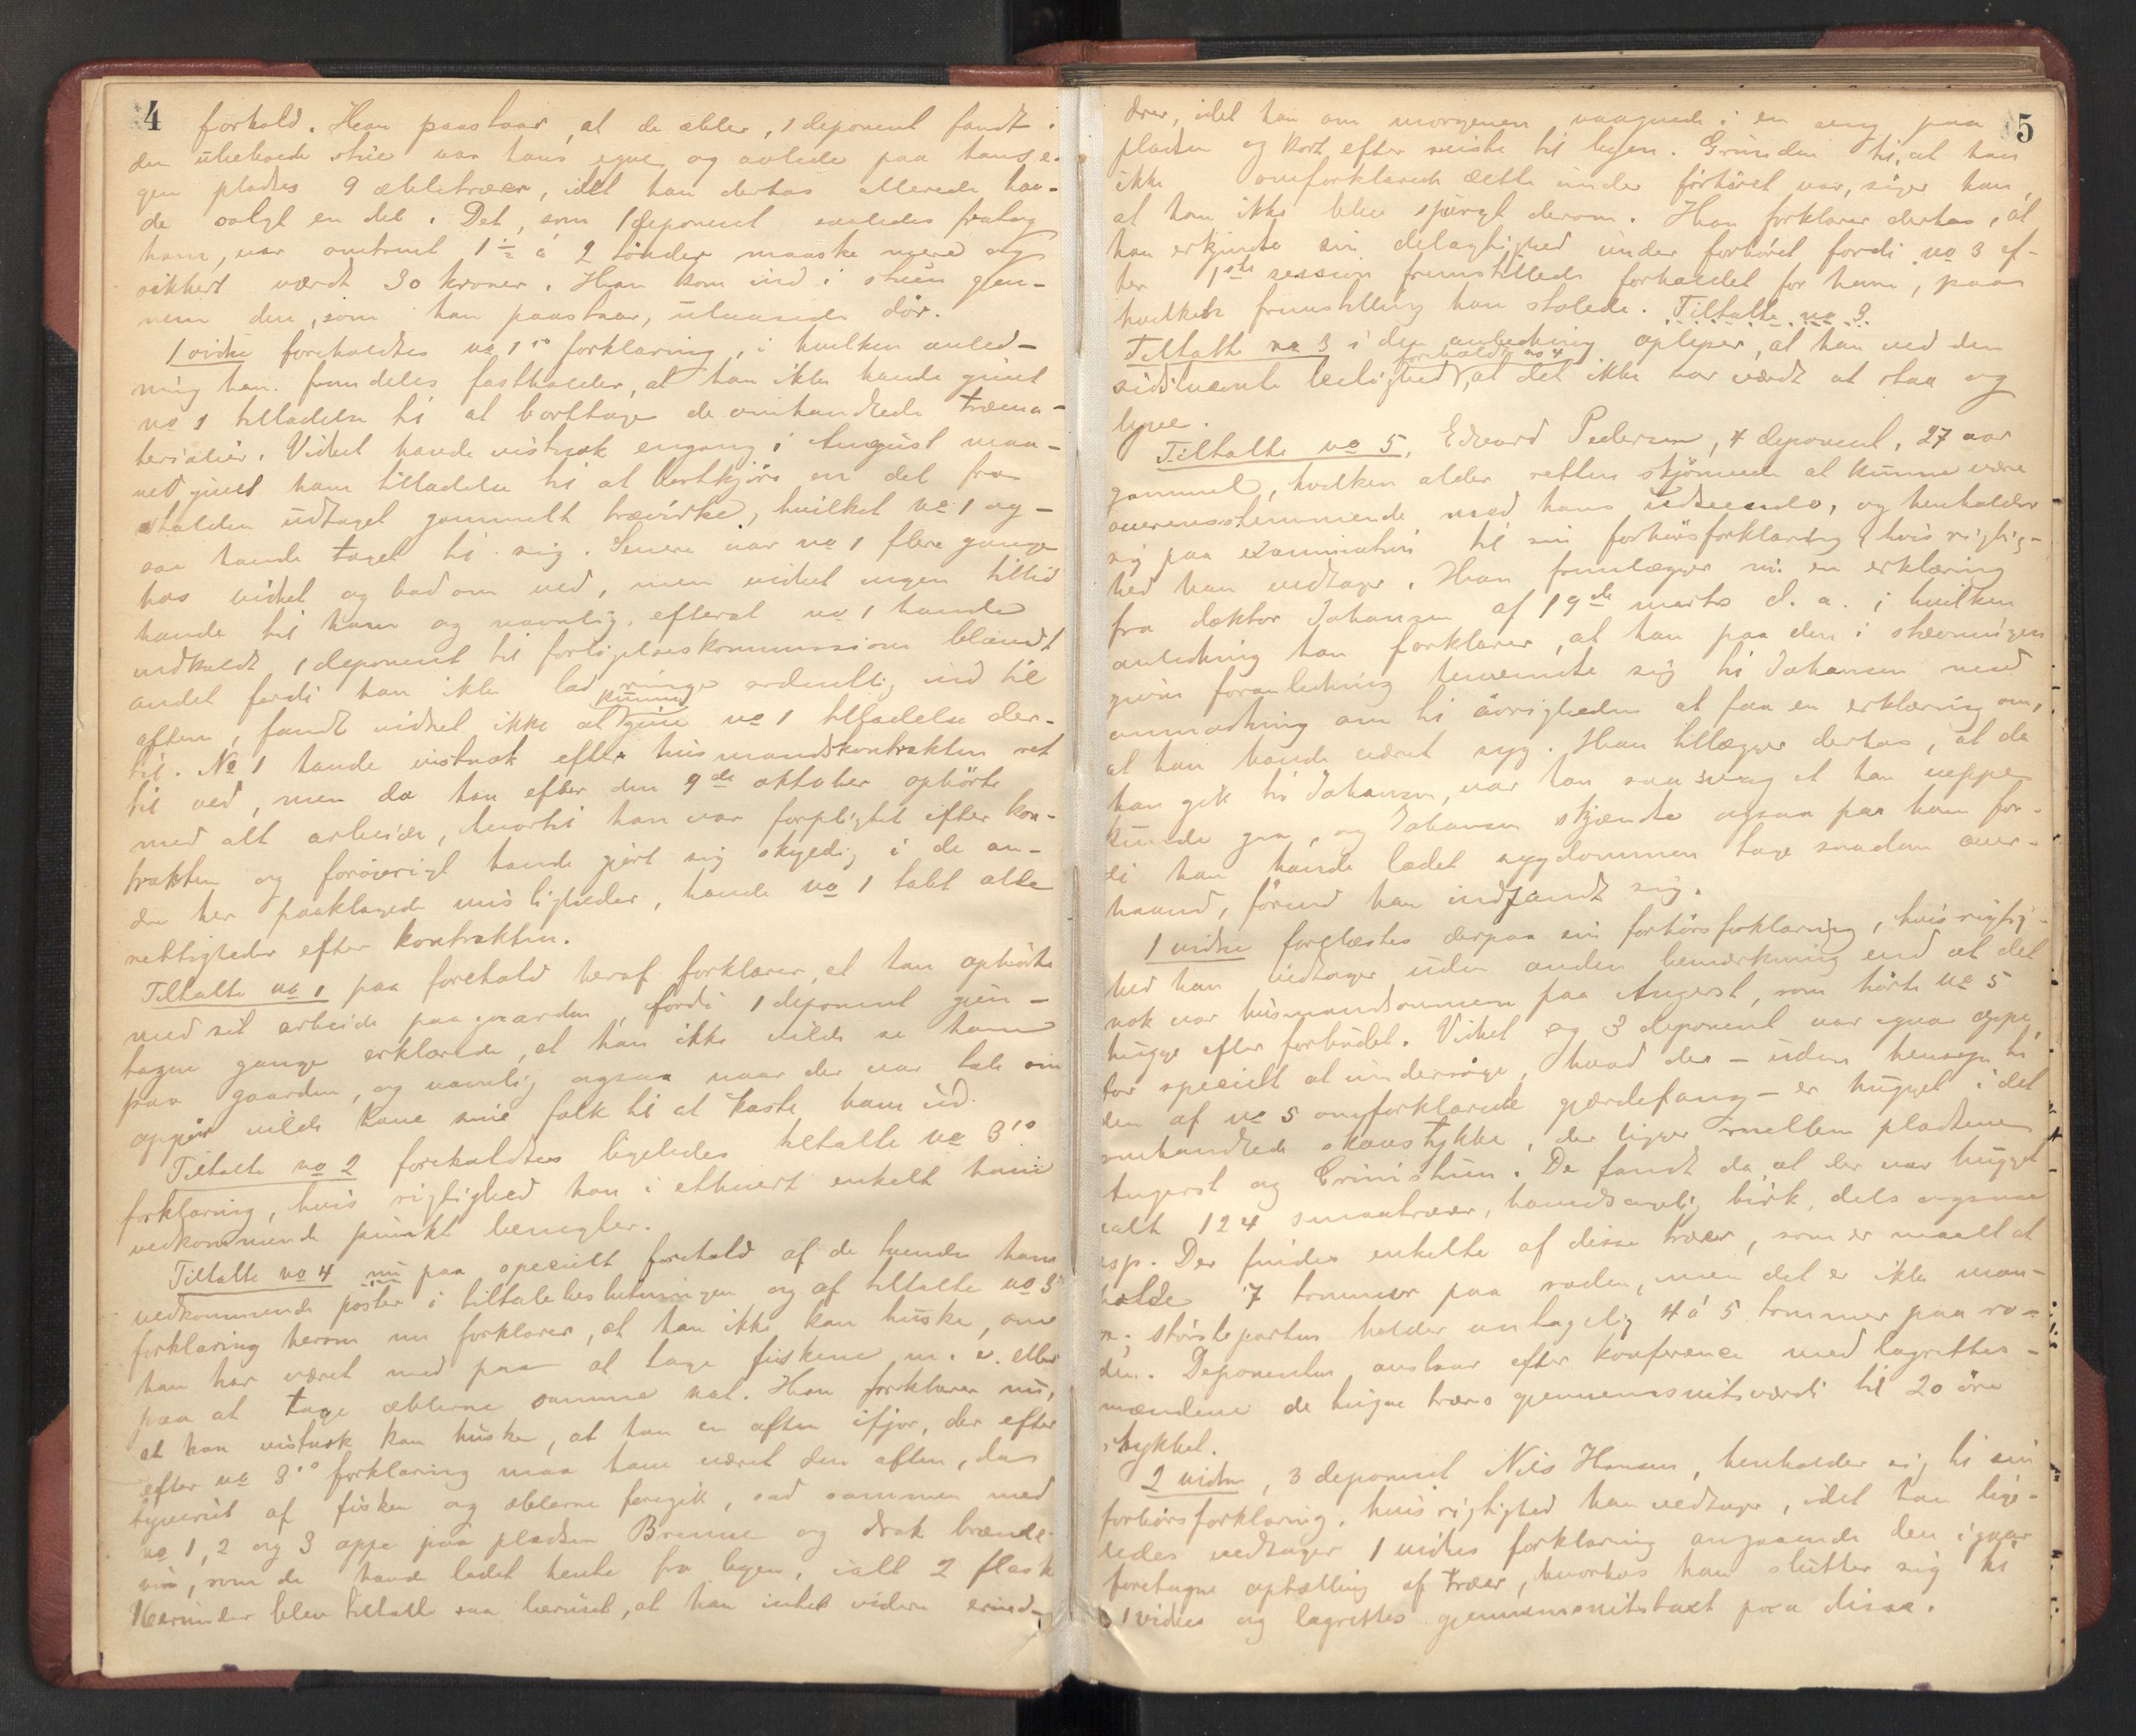 4
forhold. Han paastaar, at de æbler, 1 deponent fandt i
den ubeboede stue var hans egne og avlede paa hans e-
gen pladses 9 æbletræer, idet han derhos allerede hav-
de solgt en del. Det, som 1 deponent saaledes fratog
ham, var omtrent 1½ à 2 tönder maaske mere og
sikkert værdt 30 kroner. Han kom ind i stuen gjen-
nem den, som han paastaar, ulaasede dör.
1 vidne foreholdtes no 1s forklaring, i hvilken anled-
ning han fremdeles fastholder, at han ikke havde givet
no 1 tilladelse til at borttage de omhandlede træma-
terialier. Vidnet havde vistnok engang i August maa-
ned givet ham tilladelse til at bortkjöre en del fra
stalden udtaget gammelt trævirke, hvilket no 1 og-
saa havde taget til sig. Senere var no 1 flere gange
hos vidnet og bad om ved, men vidnet ingen tillid
havde til ham og navnlig, efterat no 1 havde
indkaldt 1 deponent til forligelseskommissionen blandt
andet fordi han ikke lod ringe ordentlig ind til
aften, fandt vidnet ikke at kunne give no 1 tilladelse der-
til. No 1 havde vistnok efter husmandskontrakten ret
til ved, men da han efter den 9de oktober ophörte
med alt arbeide, hvortil han var forpligtet efter kon-
trakten og foröverigt havde gjört sig skyldig i de an-
dre her paaklagede misligheder, havde no 1 tabt alle
rettigheder efter kontrakten.
Tiltalte no 1 paa forehold heraf forklarer, at han ophörte
med sit arbeide paa gaarden, fordi 1 deponent gjen-
tagne gange erklærede, at han ikke vilde se ham
paa gaarden, og navnlig ogsaa naar der var tale om
oppgjör vilde have sine folk til at kaste ham ud.
Tiltalte no 2 foreholdtes ligeledes tiltalte no 3s
forklaring, hvis rigtighed han i ethvert enkelt ham
vedkommende punkt benegter.
Tiltalte no 4 nu paa specielt forehold af de hende ham
vedkommende poster i tiltalebeslutningen og af tiltalte no 3s
forklaring herom nu forklarer, at han ikke kan huske, om
han har været med paa at tage fiskene m. v. eller
paa at tage æblerne samme nat. Han forklarer nu,
at han vistnok kan huske, at han en aften ifjor, der efter
efter no 3s forklaring maa have været den aften, da
tyveriet af fisken og æblerne foregik, sad sammen med
no 1, 2 og 3 oppe paa pladsen Brenne og drak brænde-
vin, som de havde ladet hente fra byen, ialt 2 flask
Herunder blev tiltalte saa beruset, at han intet videre erind-
5
drer, idet han om morgenen vaagnede i en seng paa
pladsen og kort efter reiste til byen. Grunden til, at han
ikke omforklarede dette under forhöret var, siger han,
at han ikke blev spurgt derom. Han forklarer derhos, at
han erkjendte sin delagtighed under forhöret fordi no 3 ef-
ter 1ste session fremstillede forholdet for ham, paa
hvilken fremstilling han stolede. Tiltalte no 3
Tiltalte no 3 i den anledning oplyser, at han ved den
sidstnævnte leilighed foreholdt no 4, at det ikke var værdt at staa og
lyve.
Tiltalte no 5, Edvard Pedersen, 4 deponent, 27 aar
gammel, hvilken alder retten skjönnede at kunne være
overensstemmende med hans udseende, og henholder
sig paa examination til sin forhörsforklaring hvis rigtig-
hed han vedtager. Han fremlægger nu en erklæring
fra doktor Johansen af 19de marts d. a. i hvilken
anledning han forklarer, at han paa den i stevningen
given foranledning henvendte sig til Johansen med
anmodning om til övrigheden at faa en erklæring om,
at han havde været syg. Han tillægger derhos, at da
han gik til Johansen, var han saa svag at han neppe
kunde gaa, og Johansen skjændte ogsaa paa ham for-
di han havde ladet sygdommen tage saadan over-
haand, förend han indfandt sig.
1 vidne forelæstes derpaa sin forhörsforklaring, hvis rigtig-
hed han vedtager uden anden bemærkning end at det
nok var husmandsmanden paa Angerst, som hörte no 5
hugge efter forbudet. Vidnet og 3 deponent var igaar oppe
for specielt at undersöge, hvad der - uden hensyn til
den af no 5 omforklarede gjærdefang - er hugget i det
omhandlede skovstykke, der ligger mellem pladsene
Angerst og Grinistuen. De fandt da, at der var hugget
ialt 124 smaatræer, hovedsagelig birk, dels ogsaa
asp. Der findes enkelte af disse træer, som er maalt at
holde 7 tommer paa roden, men det er ikke man-
ge; störsteparten holder antagelig 4 à 5 tommer paa ro-
den. Deponenten anslaar efter konference med lagrettes-
mændene de hugne træers gjennemsnitsværdi til 20 öre
stykket.
2 vidne, 3 deponent Nils Hansen, henholder sig til sin
forhörsforklaring, hvis rigtighed han vedtager, idet han lige-
ledes vedtager 1 vidnes forklaring angaaende den igaar
foretagne optælling af træer, hvorhos han slutter sig til
1 vidnes og lagrettes gjennemsnitstaxt paa disse.